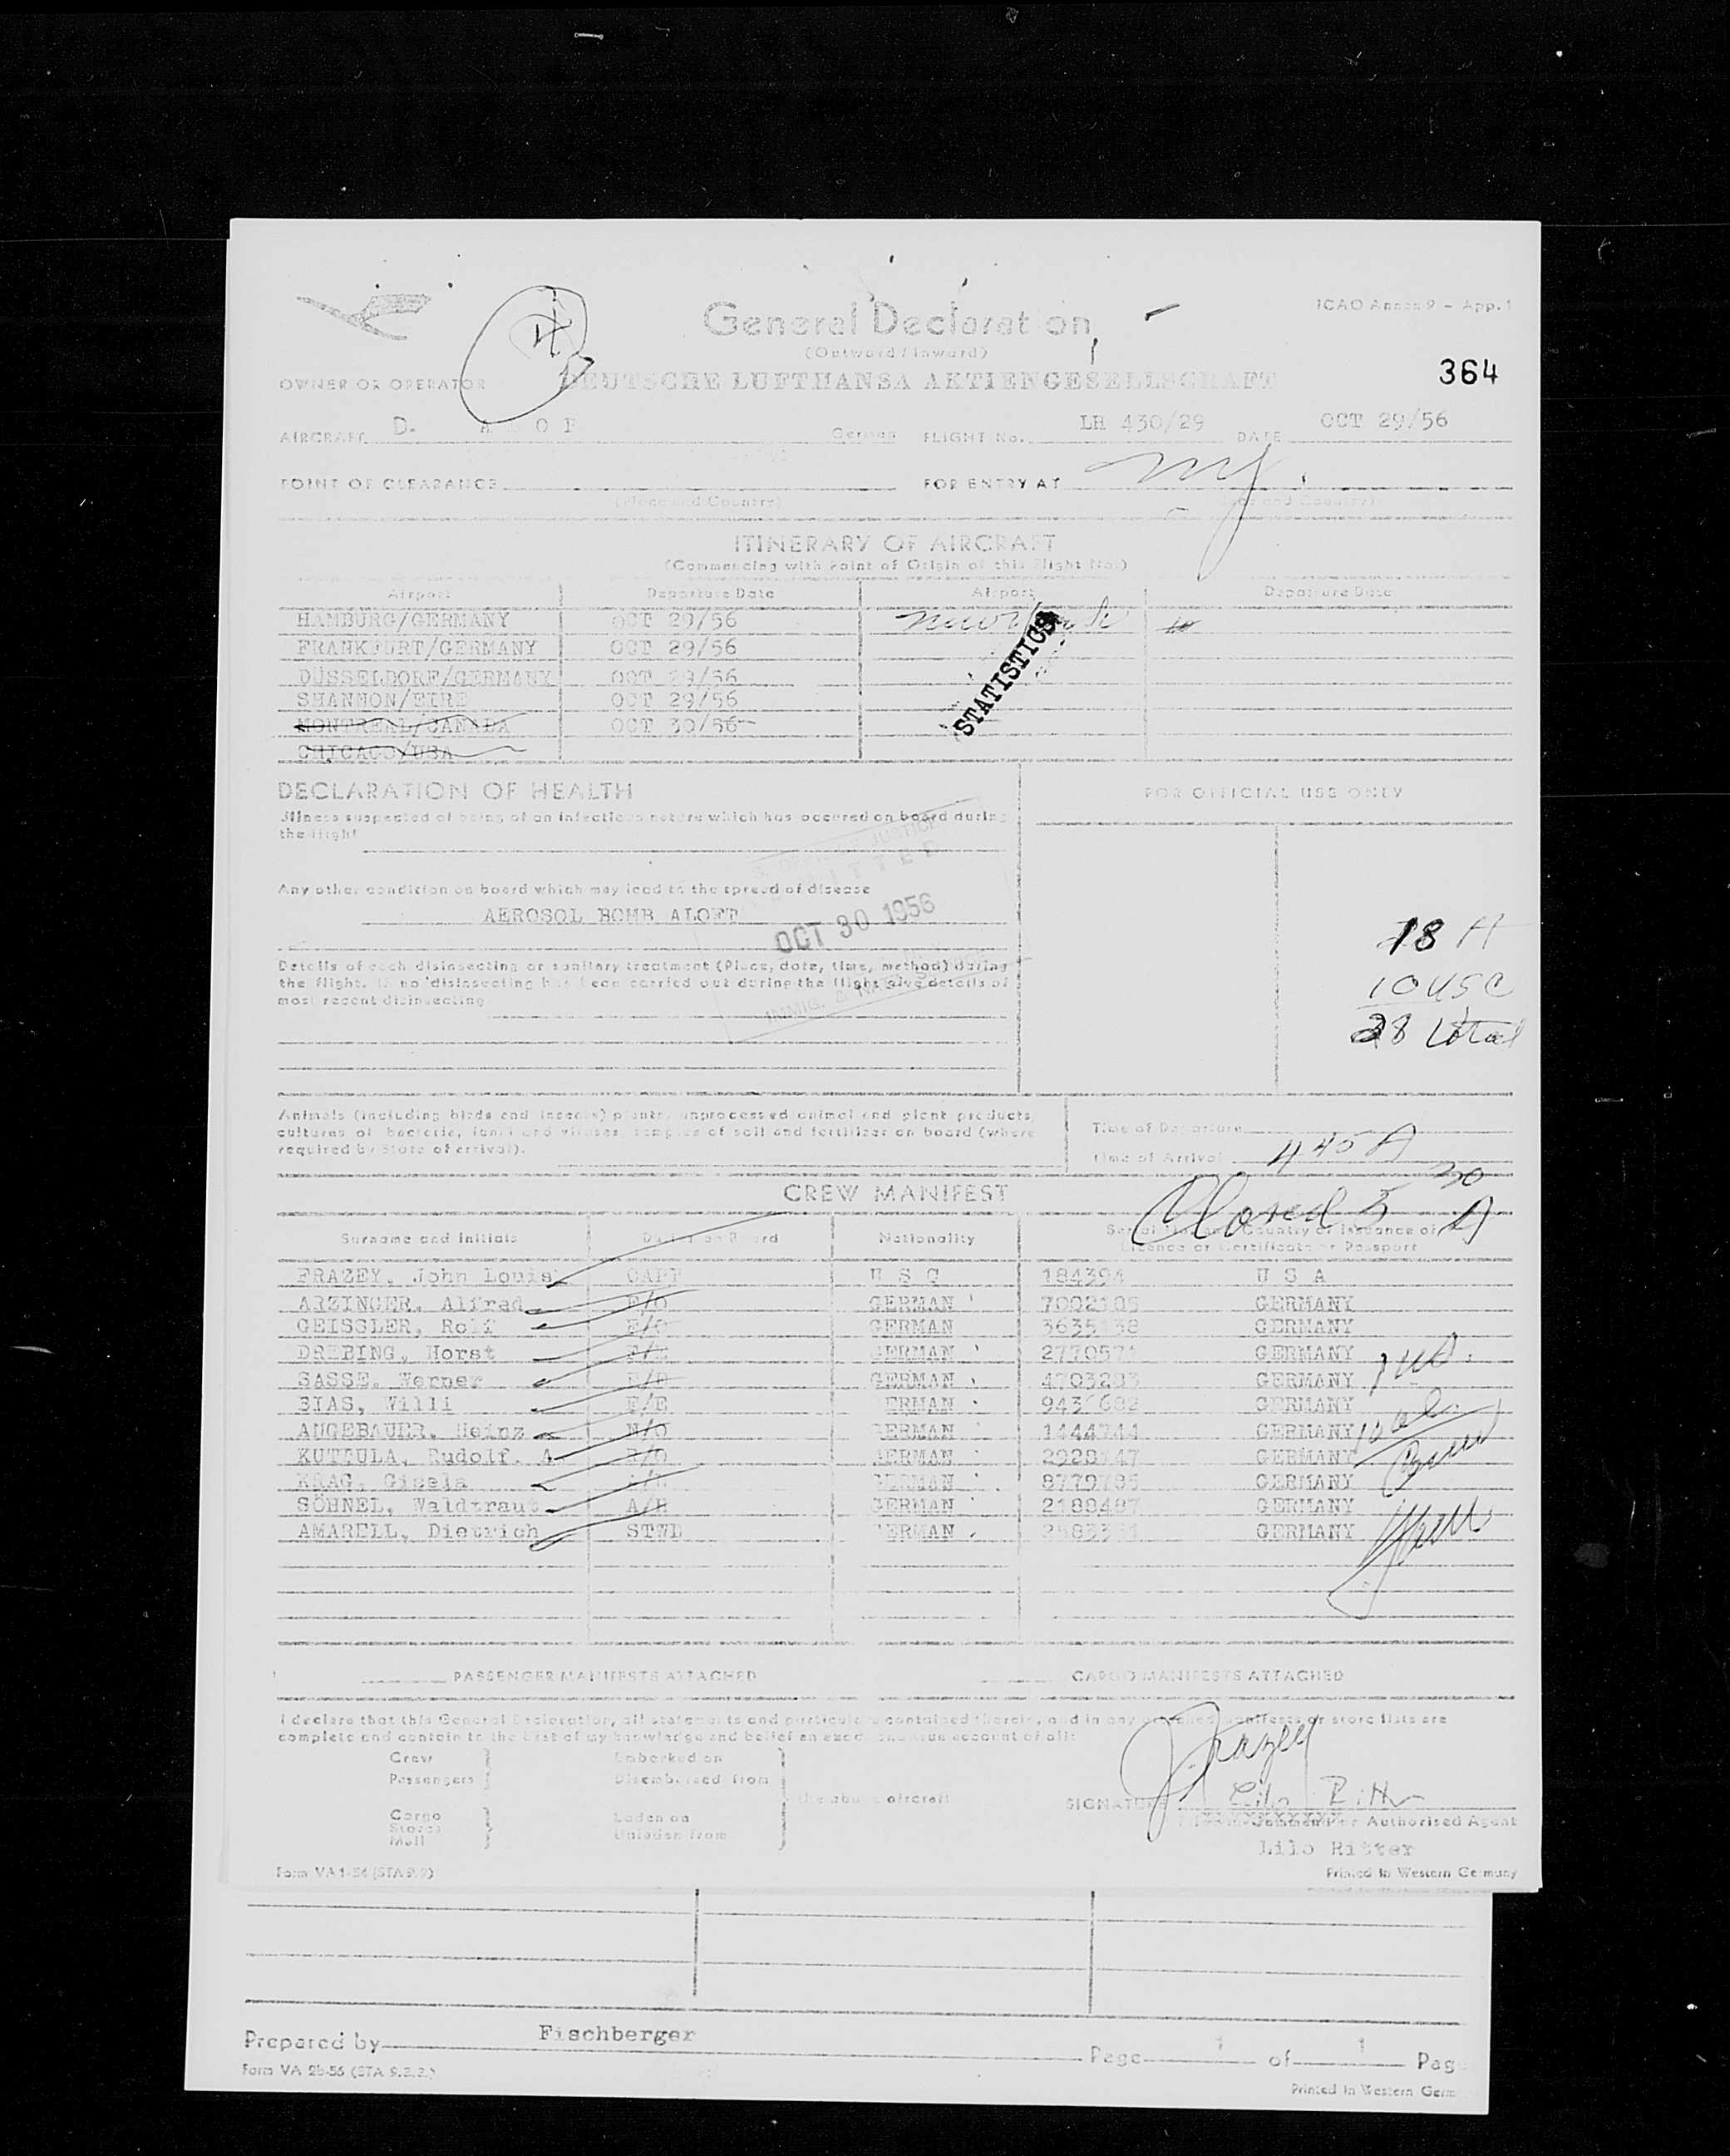 General Declaration
(Outward / Inward)
ICAO Annex 9 - App. 1
364
OWNER OR OPERATOR DEUTSCHE LUFTHANSA AKTIENGESELLSCHAFT
AIRCRAFT D. German FLIGHT No. LH 430/29 DATE OCT 29/56
POINT OF CLEARANCE FOR ENTRY AT NY.
(Place and Country) (Place and Country)
ITINERARY OF AIRCRAFT
(Commencing with Point of Origin of this Flight No.)
Airport Departure Date Airport Departure Date
HAMBURG/GERMANY OCT 29/56 New York
FRANKFURT/GERMANY OCT 29/56
DÜSSELDORF/GERMANY OCT 29/56
SHANNON/EIRE OCT 29/56
MONTREAL/CANADA OCT 30/56
CHICAGO/USA
STATISTICS
DECLARATION OF HEALTH
FOR OFFICIAL USE ONLY
Illness suspected of being of an infectious nature which has occured on board during
the flight
Any other condition on board which may lead to the spread of disease
AEROSOL BOMB ALOFT
OCT 30 1956
Details of each disinsecting or sanitary treatment (Place, date, time, method) during
the flight. If no disinsecting has been carried out during the flight give details of
most recent disinsecting
18 A
10 USC
28 Total
Animals (including birds and insects) plants, unprocessed animal and plant products,
cultures of bacteria, fungi and viruses, samples of soil and fertilizer on board (where
required by State of arrival).
Time of Departure
Time of Arrival 445 A
CREW MANIFEST
Closed 5 30 A
Surname and Initials Duties on Board Nationality Serial Country of Issuance of
Licence or Certificate or Passport
FRAZEY, John Louis CAPT U S C 184394 U S A
ARZINGER, Alfred F/O GERMAN 7002105 GERMANY
GEISSLER, Rolf F/O GERMAN 3635138 GERMANY
DREBING, Horst GERMAN 2770571 GERMANY
SASSE, Werner GERMAN 4703283 GERMANY
BIAS, Willi F/E GERMAN GERMANY
AUGEBAUER, Heinz N/O GERMAN GERMANY
KUTTULA, Rudolf, A R/O GERMAN GERMANY
KRAG, Gisela GERMAN 8779785 GERMANY
SÖHNEL, Waldtraut A/H GERMAN 2188487 GERMANY
AMARELL, Dietrich STWD GERMAN GERMANY
PASSENGER MANIFESTS ATTACHED CARGO MANIFESTS ATTACHED
I declare that this General Declaration, all statements and particulars contained therein, and in any attached manifests or store lists are
complete and contain to the best of my knowledge and belief an exact and true account of all:
Crew Embarked on
Passengers Disembarked from
the above aircraft
Cargo Laden on
Stores Unladen from
Mail
J. Frazey
SIGNATURE Lilo Ritter
Authorised Agent
Lilo Ritter
Form VA 1-56 (STA 9.9)
Printed in Western Germany
Prepared by Fischberger Page 1 of 1 Pag
Form VA 2b-56 (STA 9.3.2.)
Printed in Western Germ